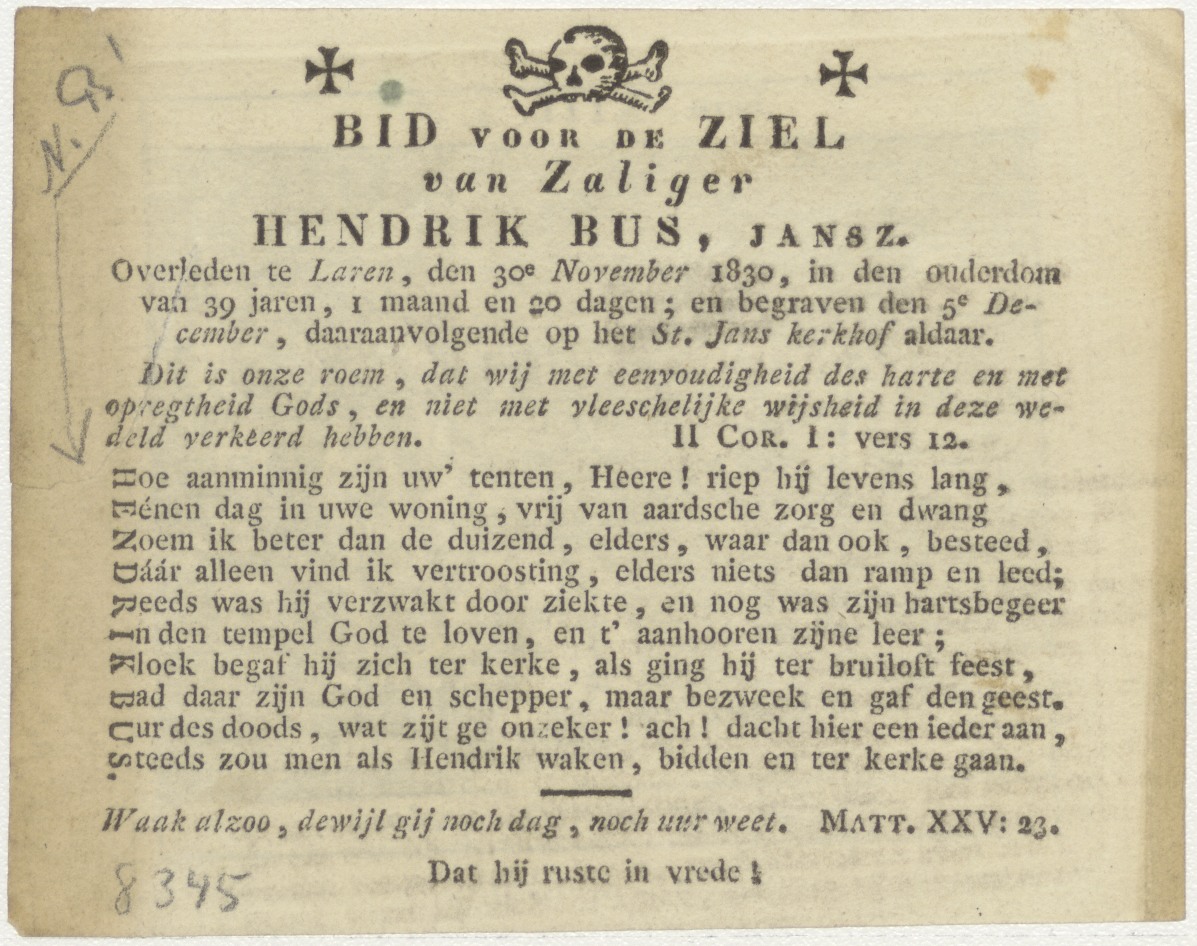 N. B!
BID VOOR DE ZIEL
van Zaliger
HENDRIK BUS, JANSZ.
Overleden te Laren, den 30e November 1830, in den ouderdom
van 39 jaren, 1 maand en 20 dagen; en begraven den 5e De-
cember, daaraanvolgende op het St. Jans kerkhof aldaar.
Dit is onze roem, dat wij met eenvoudigheid des harte en met
opregtheid Gods, en niet met vleeschelijke wijsheid in deze we-
deld verkeerd hebben. II COR. I: vers 12.
Hoe aanminnig zijn uw' tenten, Heere! riep hij levens lang,
Eénen dag in uwe woning, vrij van aardsche zorg en dwang
Noem ik beter dan de duizend, elders, waar dan ook, besteed,
Dáár alleen vind ik vertroosting, elders niets dan ramp en leed;
Reeds was hij verzwakt door ziekte, en nog was zijn hartsbegeer
In den tempel God te loven, en t' aanhooren zijne leer;
Kloek begaf hij zich ter kerke, als ging hij ter bruiloft feest,
Bad daar zijn God en schepper, maar bezweek en gaf den geest.
Uur des doods, wat zijt ge onzeker! ach! dacht hier een ieder aan,
Steeds zou men als Hendrik waken, bidden en ter kerke gaan.
Waak alzoo, dewijl gij noch dag, noch uur weet. MATT. XXV: 23.
Dat hij ruste in vrede!
8345